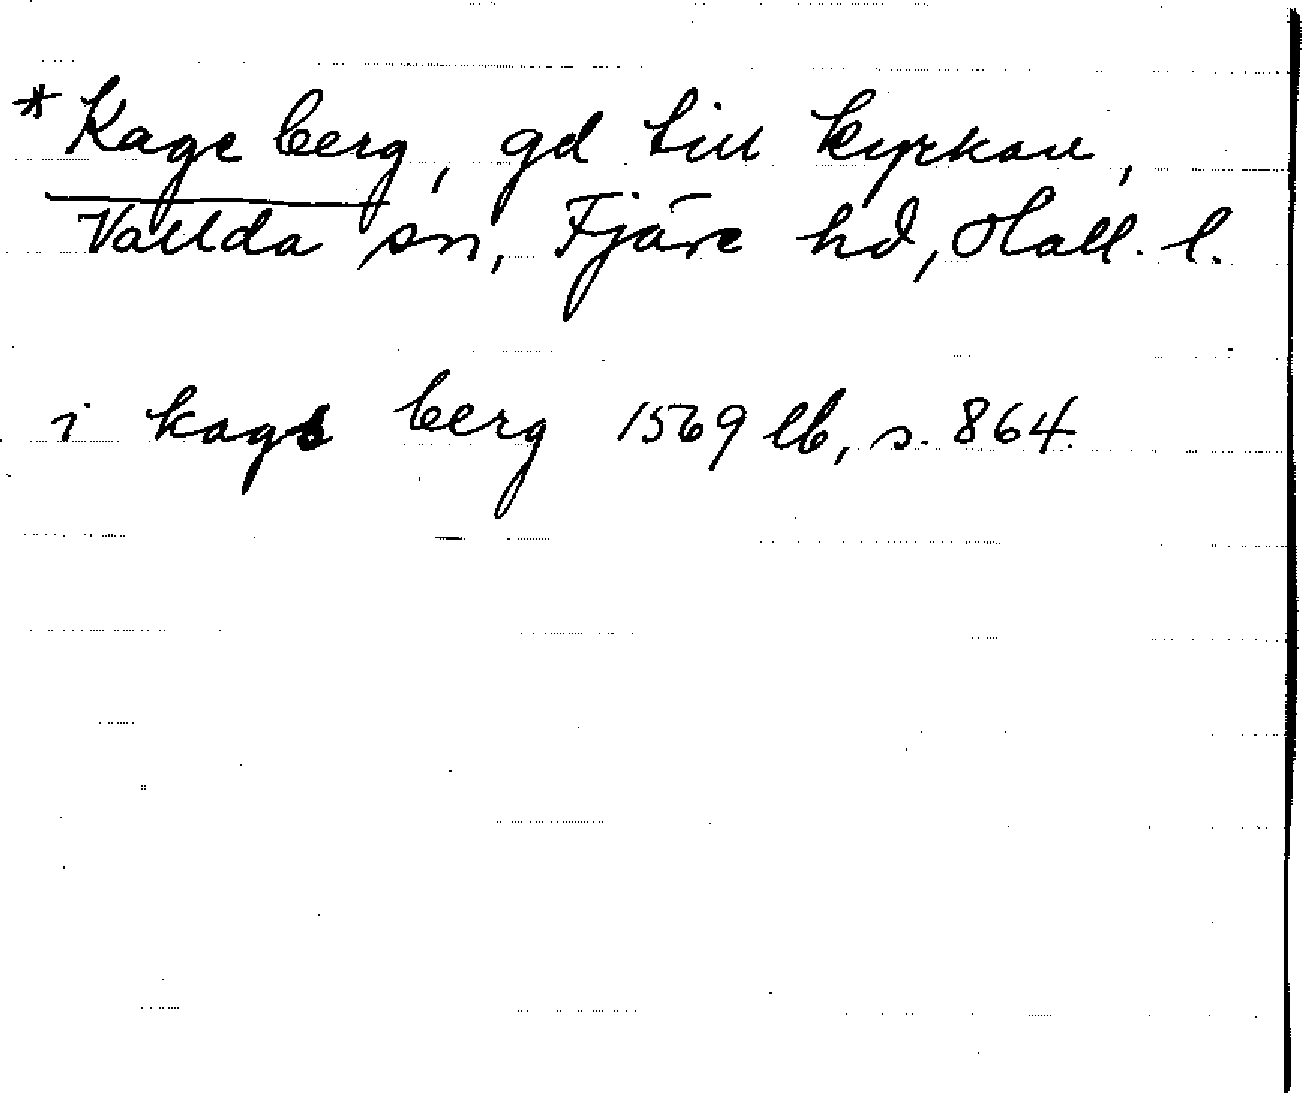 *Kageberg, gd till kyrkan,
Vallda sn, Fjäre hd, Hall. l.
i kags berg 1569 lb, s. 864.